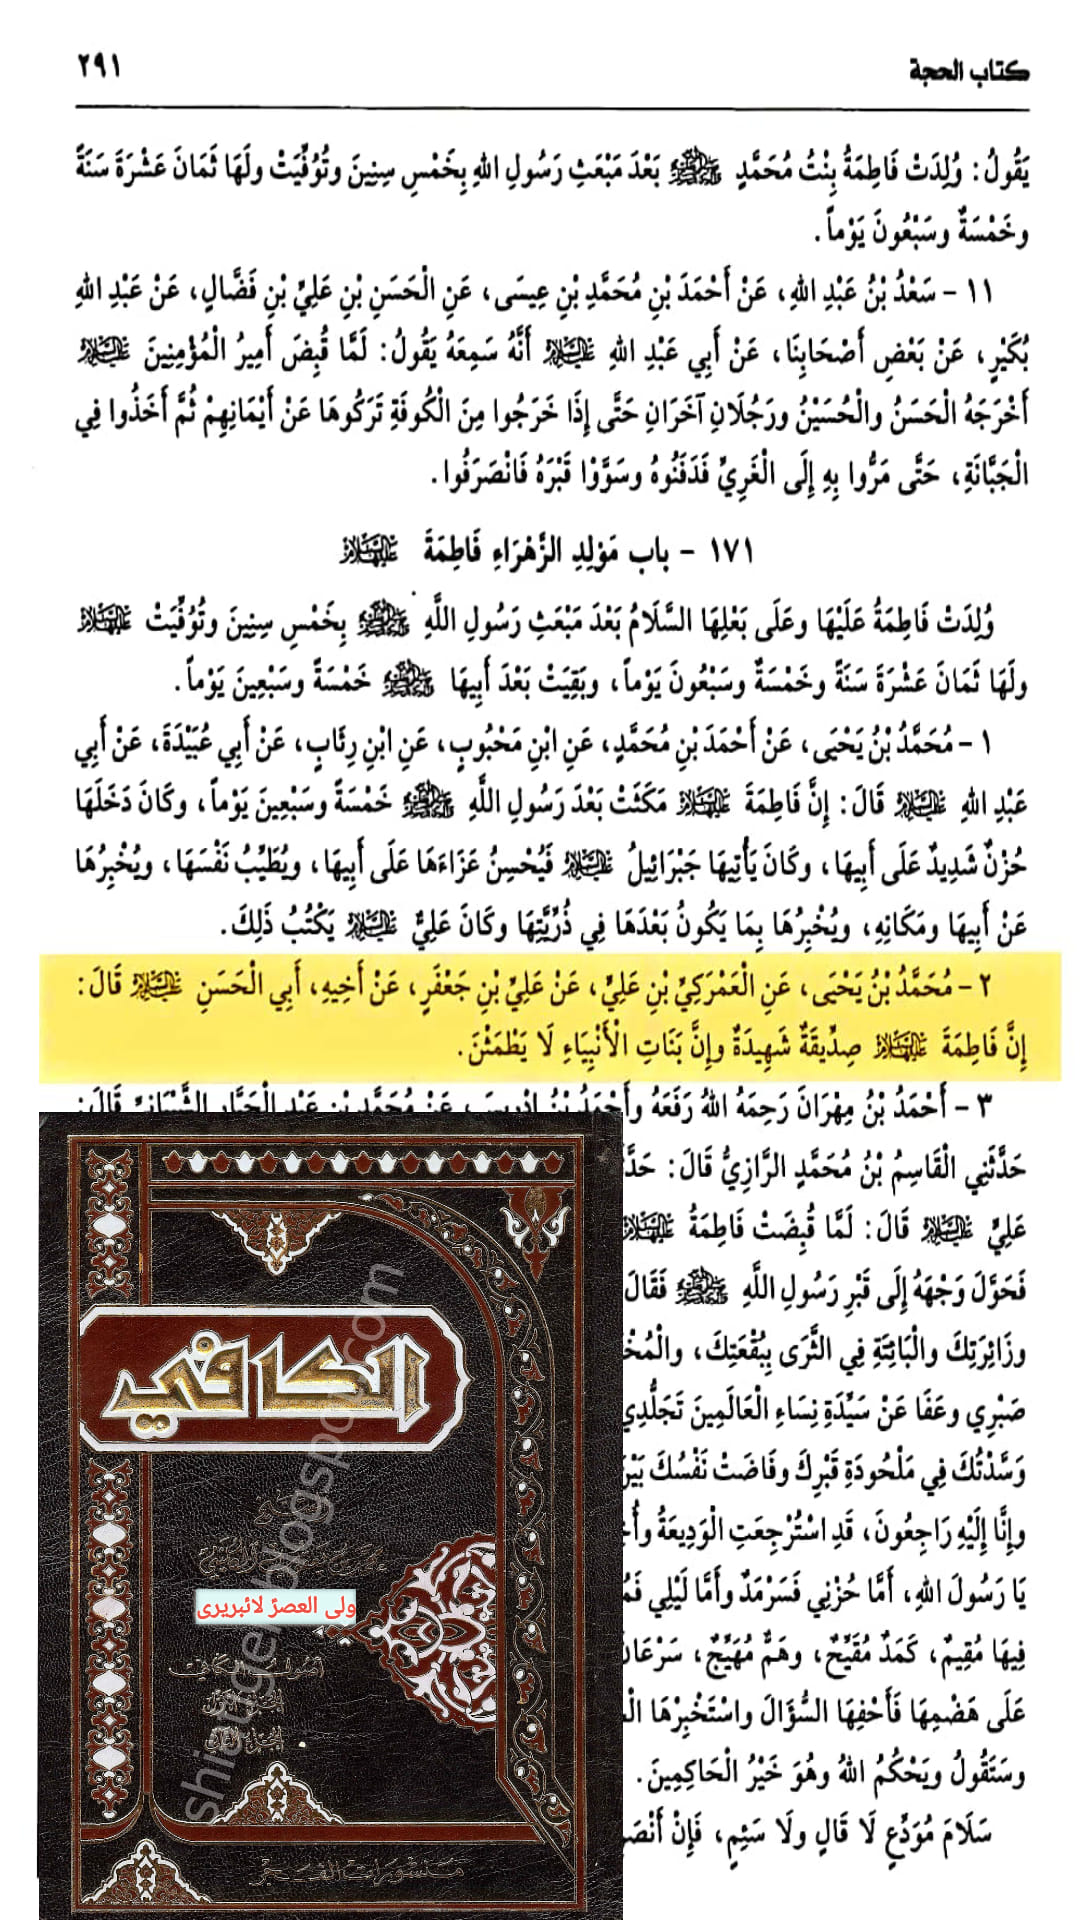 كتاب الحجة
٢٩١
يَقُولُ: وُلِدَتْ فَاطِمَةُ بِنْتُ مُحَمَّدٍ ﷺ بَعْدَ مَبْعَثِ رَسُولِ اللهِ بِخَمْسِ سِنِينَ وتُوُفِّيَتْ ولَهَا ثَمَانَ عَشْرَةَ سَنَةً
وخَمْسَةٌ وسَبْعُونَ يَوْماً.
١١ - سَعْدُ بْنُ عَبْدِ اللهِ، عَنْ أَحْمَدَ بْنِ مُحَمَّدِ بْنِ عِيسَى، عَنِ الْحَسَنِ بْنِ عَلِيِّ بْنِ فَضَّالٍ، عَنْ عَبْدِ اللهِ
بُكَيْرٍ، عَنْ بَعْضِ أَصْحَابِنَا، عَنْ أَبِي عَبْدِ اللهِ عَلَيْهِ السَّلَامُ أَنَّهُ سَمِعَهُ يَقُولُ: لَمَّا قُبِضَ أَمِيرُ الْمُؤْمِنِينَ عَلَيْهِ السَّلَامُ
أَخْرَجَهُ الْحَسَنُ والْحُسَيْنُ ورَجُلَانِ آخَرَانِ حَتَّى إِذَا خَرَجُوا مِنَ الْكُوفَةِ تَرَكُوهَا عَنْ أَيْمَانِهِمْ ثُمَّ أَخَذُوا فِي
الْجَبَّانَةِ، حَتَّى مَرُّوا بِهِ إِلَى الْغَرِيِّ فَدَفَنُوهُ وسَوَّوْا قَبْرَهُ فَانْصَرَفُوا.
١٧١ - باب مَوْلِدِ الزَّهْرَاءِ فَاطِمَةَ عَلَيْهَا السَّلَامُ
وُلِدَتْ فَاطِمَةُ عَلَيْهَا وعَلَى بَعْلِهَا السَّلَامُ بَعْدَ مَبْعَثِ رَسُولِ اللَّهِ ﷺ بِخَمْسِ سِنِينَ وتُوُفِّيَتْ عَلَيْهَا السَّلَامُ
ولَهَا ثَمَانَ عَشْرَةَ سَنَةً وخَمْسَةٌ وسَبْعُونَ يَوْماً، وبَقِيَتْ بَعْدَ أَبِيهَا ﷺ خَمْسَةً وسَبْعِينَ يَوْماً.
١ - مُحَمَّدُ بْنُ يَحْيَى، عَنْ أَحْمَدَ بْنِ مُحَمَّدٍ، عَنِ ابْنِ مَحْبُوبٍ، عَنِ ابْنِ رِئَابٍ، عَنْ أَبِي عُبَيْدَةَ، عَنْ أَبِي
عَبْدِ اللهِ عَلَيْهِ السَّلَامُ قَالَ: إِنَّ فَاطِمَةَ عَلَيْهَا السَّلَامُ مَكَثَتْ بَعْدَ رَسُولِ اللَّهِ ﷺ خَمْسَةً وسَبْعِينَ يَوْماً، وكَانَ دَخَلَهَا
حُزْنٌ شَدِيدٌ عَلَى أَبِيهَا، وكَانَ يَأْتِيهَا جَبْرَائِيلُ عَلَيْهِ السَّلَامُ فَيُحْسِنُ عَزَاءَهَا عَلَى أَبِيهَا، ويُطَيِّبُ نَفْسَهَا، ويُخْبِرُهَا
عَنْ أَبِيهَا ومَكَانِهِ، ويُخْبِرُهَا بِمَا يَكُونُ بَعْدَهَا فِي ذُرِّيَّتِهَا وكَانَ عَلِيٌّ عَلَيْهِ السَّلَامُ يَكْتُبُ ذَلِكَ.
٢ - مُحَمَّدُ بْنُ يَحْيَى، عَنِ الْعَمْرَكِيِّ بْنِ عَلِيٍّ، عَنْ عَلِيِّ بْنِ جَعْفَرٍ، عَنْ أَخِيهِ، أَبِي الْحَسَنِ عَلَيْهِ السَّلَامُ قَالَ:
إِنَّ فَاطِمَةَ عَلَيْهَا السَّلَامُ صِدِّيقَةٌ شَهِيدَةٌ وإِنَّ بَنَاتِ الْأَنْبِيَاءِ لَا يَطْمَثْنَ.
٣ - أَحْمَدُ بْنُ مِهْرَانَ رَحِمَهُ اللهُ رَفَعَهُ وأَحْمَدُ بْنُ إِدْرِيسَ، عَنْ مُحَمَّدِ بْنِ عَبْدِ الْجَبَّارِ الشَّيْبَانِيِّ قَالَ:
حَدَّثَنِي الْقَاسِمُ بْنُ مُحَمَّدٍ الرَّازِيُّ قَالَ:
عَلِيٍّ عَلَيْهِ السَّلَامُ قَالَ: لَمَّا قُبِضَتْ فَاطِمَةُ عَلَيْهَا السَّلَامُ
فَحَوَّلَ وَجْهَهُ إِلَى قَبْرِ رَسُولِ اللَّهِ ﷺ فَقَالَ
وزَائِرَتِكَ والْبَائِتَةِ فِي الثَّرَى بِبُقْعَتِكَ،
صَبْرِي وعَفَا عَنْ سَيِّدَةِ نِسَاءِ الْعَالَمِينَ تَجَلُّدِي
وَسَّدْتُكَ فِي مَلْحُودَةِ قَبْرِكَ وفَاضَتْ نَفْسُكَ
وإِنَّا إِلَيْهِ رَاجِعُونَ، قَدِ اسْتُرْجِعَتِ الْوَدِيعَةُ
يَا رَسُولَ اللهِ، أَمَّا حُزْنِي فَسَرْمَدٌ وأَمَّا لَيْلِي
فِيهَا مُقِيمٌ، كَمَدٌ مُقَيِّحٌ، وهَمٌّ مُهَيِّجٌ، سَرْعَانَ
عَلَى هَضْمِهَا فَأَحْفِهَا السُّؤَالَ واسْتَخْبِرْهَا
وسَتَقُولُ ويَحْكُمُ اللهُ وهُوَ خَيْرُ الْحَاكِمِينَ.
سَلَامَ مُوَدِّعٍ لَا قَالٍ ولَا سَئِمٍ، فَإِنْ
الكافي
ولی العصرؑ لائبریری
أصول الكافي
منشورات الفجر